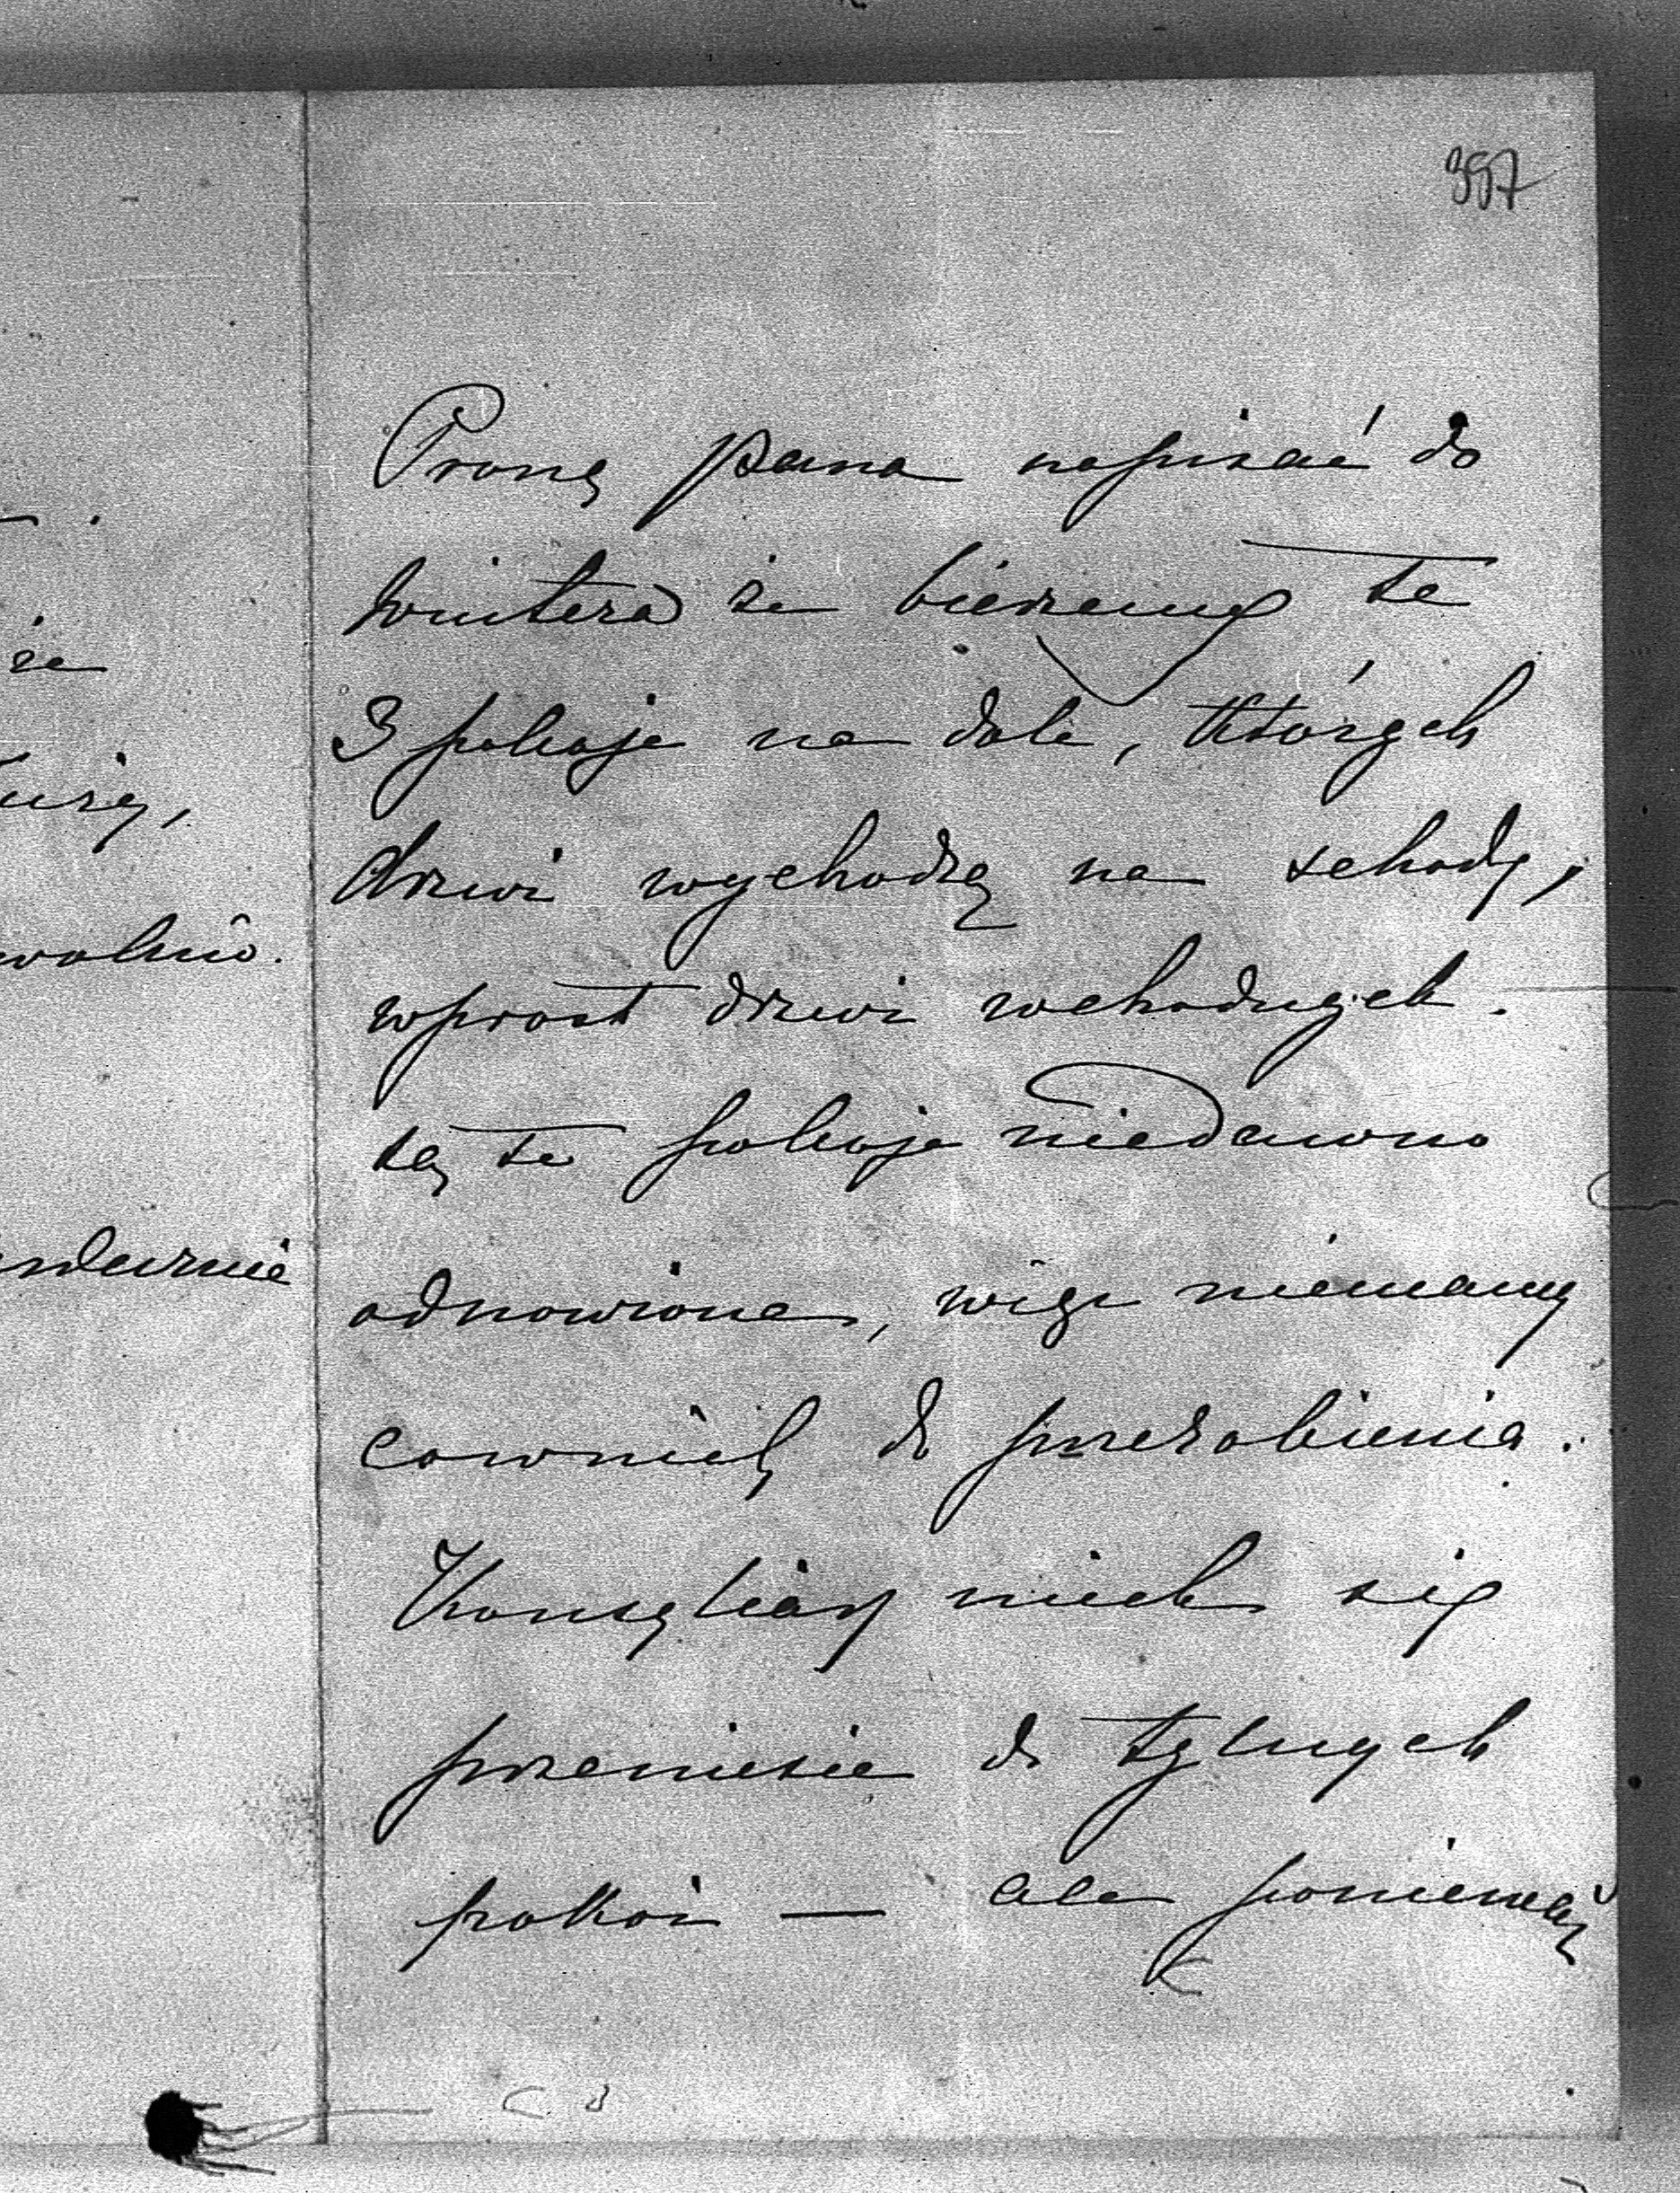 397
Proszę pana napisać do
Wintera że bierzemy te
3 pokoje na dole, których
drzwi wychodzą na schody,
wprost drzwi wchodnych.
są te pokoje niedawno
odnowione, więc niemamy
do przerobienia.
niech się
przeniesie do tylnych
pokoi — ale ponieważ
że
wolno.